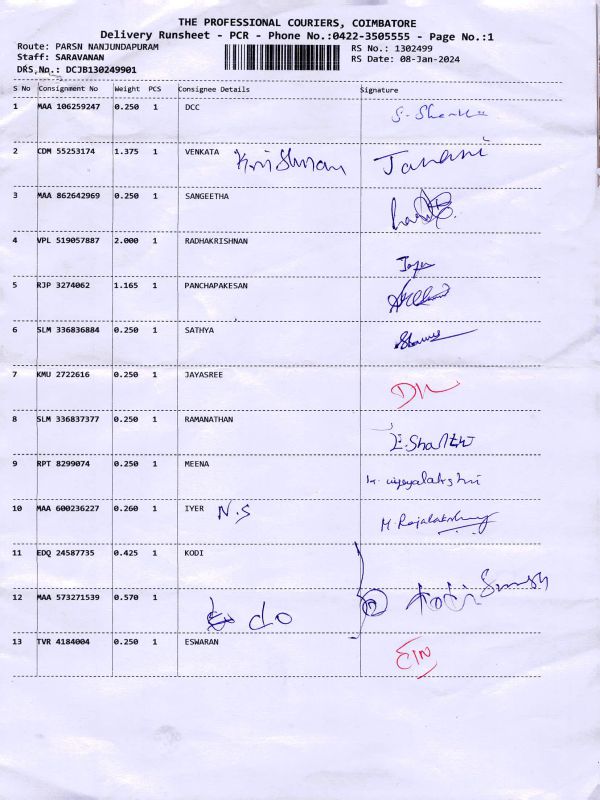 THE PROFESSIONAL COURIERS, COIMBATORE
Delivery Runsheet - PCR - Phone No.:0422-3505555 - Page No.:1
Route: PARSN NANJUNDAPURAM RS No.: 1302499
Staff: SARAVANAN RS Date: 08-Jan-2024
DRS.No.: DCJB130249901
S No Consignment No Weight PCS Consignee Details Signature
1 MAA 106259247 0.250 1 DCC
2 CDM 55253174 1.375 1 VENKATA Krishnan Janani
3 MAA 862642969 0.250 1 SANGEETHA
4 VPL 519057887 2.000 1 RADHAKRISHNAN
5 RJP 3274062 1.165 1 PANCHAPAKESAN
6 SLM 336836884 0.250 1 SATHYA
7 KMU 2722616 0.250 1 JAYASREE
8 SLM 336837377 0.250 1 RAMANATHAN
9 RPT 8299074 0.250 1 MEENA
10 MAA 600236227 0.260 1 IYER N.S M.Rajalakshmy
11 EDQ 24587735 0.425 1 KODI
12 MAA 573271539 0.570 1 do Kodi Suresh
13 TVR 4184004 0.250 1 ESWARAN